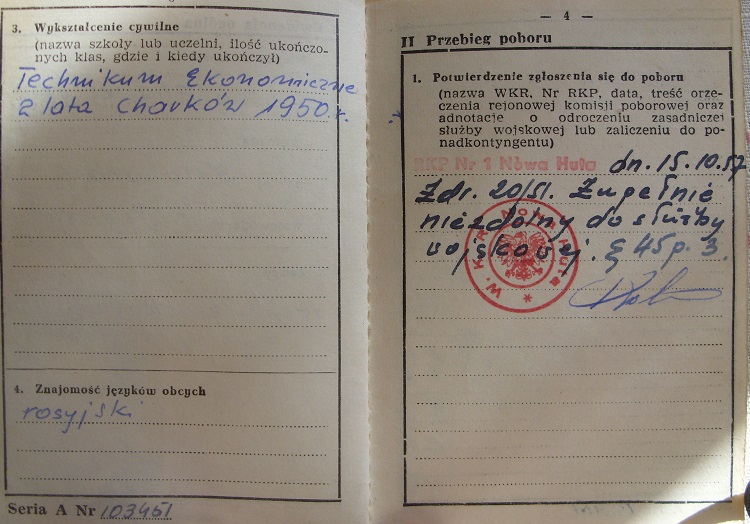 3. Wykształcenie cywilne
(nazwa szkoły lub uczelni, ilość ukończo-
nych klas, gdzie i kiedy ukończył)
Technikum Ekonomiczne
2 lata Charków 1950 r.
4. Znajomość języków obcych
rosyjski
Seria A Nr 103451
— 4 —
II Przebieg poboru
1. Potwierdzenie zgłoszenia się do poboru
(nazwa WKR, Nr RKP, data, treść orze-
czenia rejonowej komisji poborowej oraz
adnotacje o odroczeniu zasadniczej
służby wojskowej lub zaliczeniu do po-
nadkontyngentu)
RKP Nr 1 Nowa Huta dn. 15.10.57
Zdr. 20/51. Zupełnie
niezdolny do służby
wojskowej. § 45 p. 3.
W. K. R. NOWA HUTA